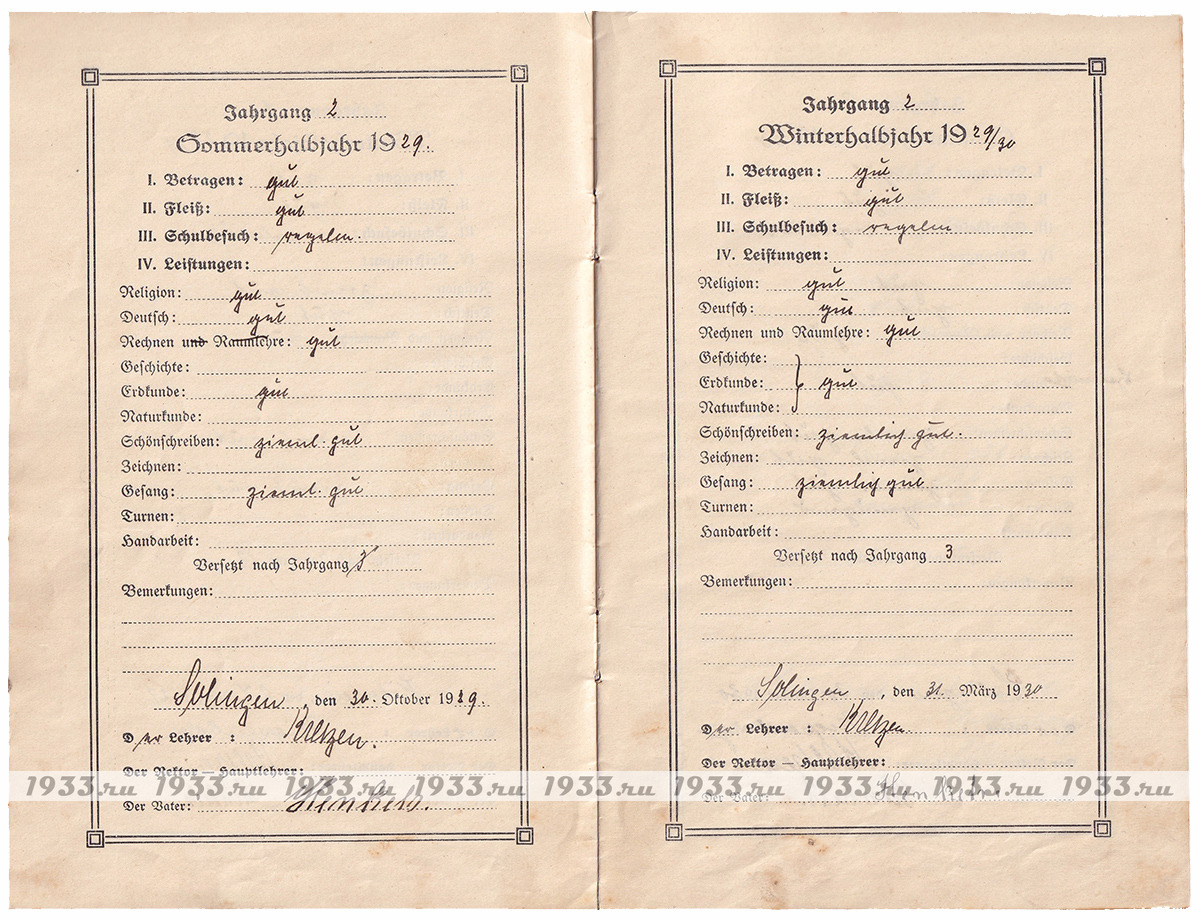 Jahrgang 2
Sommerhalbjahr 1929.
I. Betragen: gut
II. Fleiß: gut
III. Schulbesuch: regelm.
IV. Leistungen:
Religion: gut
Deutsch: gut
Rechnen und Raumlehre: gut
Geschichte:
Erdkunde: gut
Naturkunde:
Schönschreiben: zieml. gut
Zeichnen:
Gesang: zieml. gut
Turnen:
Handarbeit:
Versetzt nach Jahrgang
Bemerkungen:
Solingen, den 30. Oktober 1929.
Der Lehrer :
Der Rektor — Hauptlehrer:
Der Vater:
Jahrgang 2
Winterhalbjahr 1929/30
I. Betragen: gut
II. Fleiß: gut
III. Schulbesuch: regelm
IV. Leistungen:
Religion: gut
Deutsch: gut
Rechnen und Raumlehre: gut
Geschichte:
Erdkunde: gut
Naturkunde:
Schönschreiben: ziemlich gut.
Zeichnen:
Gesang: ziemlich gut
Turnen:
Handarbeit:
Versetzt nach Jahrgang 3
Bemerkungen:
Solingen, den 31. März 1930
Der Lehrer :
Der Rektor — Hauptlehrer:
Der Vater:
1933.ru 1933.ru 1933.ru 1933.ru 1933.ru 1933.ru 1933.ru 1933.ru 1933.ru